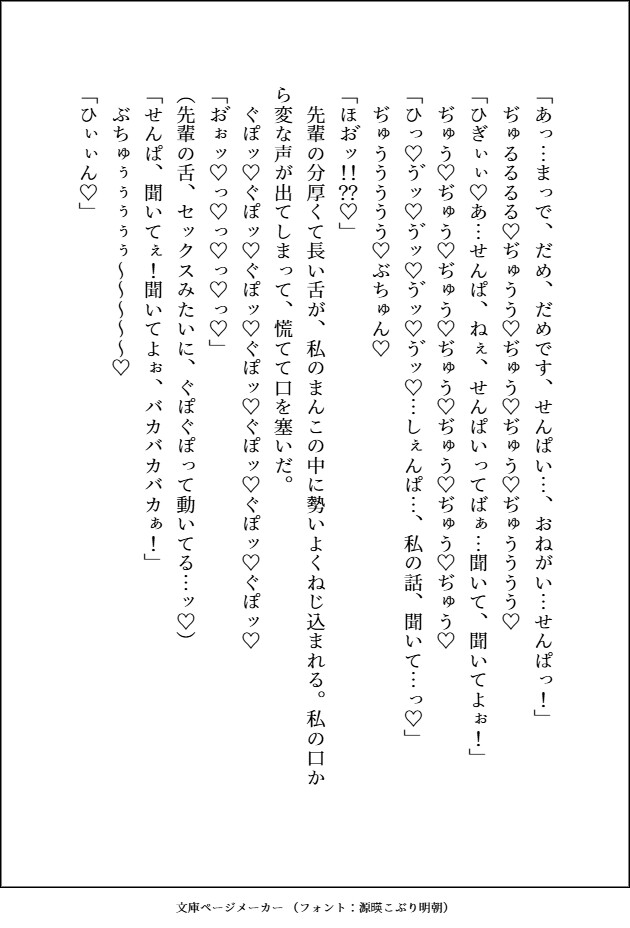 「あっ…まっで、だめ、だめです、せんぱい…、おねがい…せんぱっ！」
ぢゅるるるる♡ぢゅうう♡ぢゅう♡ぢゅう♡ぢゅうううう♡
「ひぎぃぃ♡あ…せんぱ、ねぇ、せんぱいってばぁ…聞いて、聞いてよぉ！」
ぢゅう♡ぢゅう♡ぢゅう♡ぢゅう♡ぢゅう♡ぢゅう♡ぢゅう♡
「ひっ♡ゔッ♡ゔッ♡ゔッ♡ゔッ♡…しぇんぱ…、私の話、聞いて…っ♡」
ぢゅううううう♡ぶちゅん♡
「ほお゛ッ!!??♡」
先輩の分厚くて長い舌が、私のまんこの中に勢いよくねじ込まれる。私の口か
ら変な声が出てしまって、慌てて口を塞いだ。
ぐぽッ♡ぐぽッ♡ぐぽッ♡ぐぽッ♡ぐぽッ♡ぐぽッ♡ぐぽッ♡
「お゛ぉッ♡っ♡っ♡っ♡っ♡」
（先輩の舌、セックスみたいに、ぐぽぐぽって動いてる…ッ♡）
「せんぱ、聞いてぇ！聞いてよぉ、バカバカバカぁ！」
ぶちゅぅぅぅぅぅ～～～～～♡
「ひぃぃん♡」
文庫ページメーカー（フォント：源暎こぶり明朝）